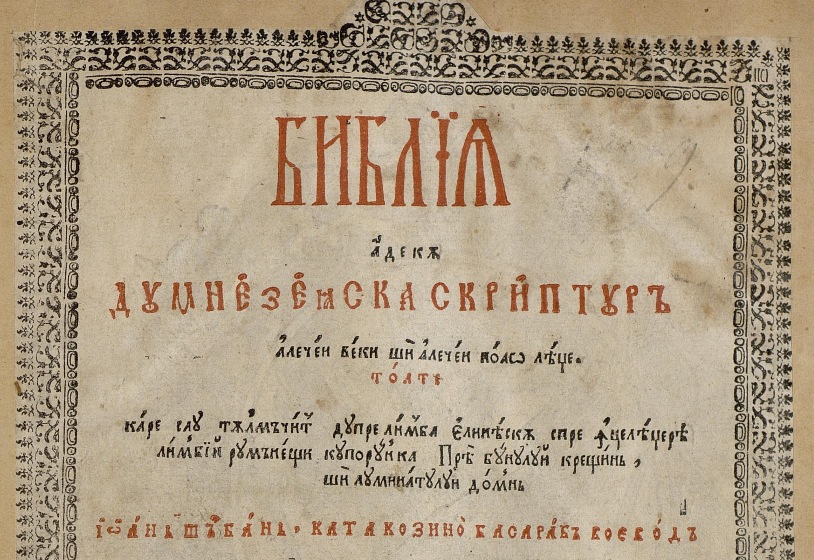 БИБЛЇѦ
а҆декъ
ДꙊМНЕ҆ЗЕ҆ꙗСКА СКРИ́ПТꙊРЪ
а҆лечей веки ши́ а҆лечей ноао лѣџе.
то́ате
ка́ре сау тълмъчи́т дупре ли́мба е҆линѣскъ спре ꙟцелѣџерѣ
ли́мбїй румънещи купору́нка Прѣ бунулуй крещинь,
ши́ луминатулуй до́мнь
Їѡа́нь Шърба́нь, КАТАКОЗИНО́ БАСАРА́БЪ ВОЕВО́ДЪ